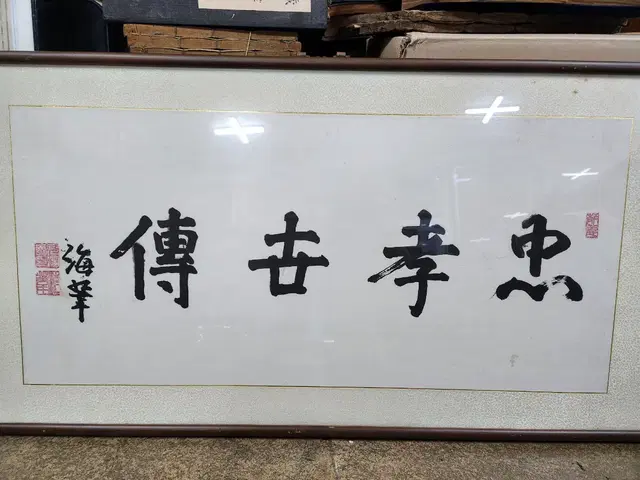 忠孝世傳
海華